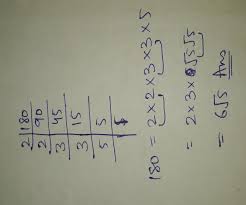 2|180
2|90
3|45
3|15
5|5
1
180 = 2×2×3×3×5
= 2×3×√5
= 6√5 Ans